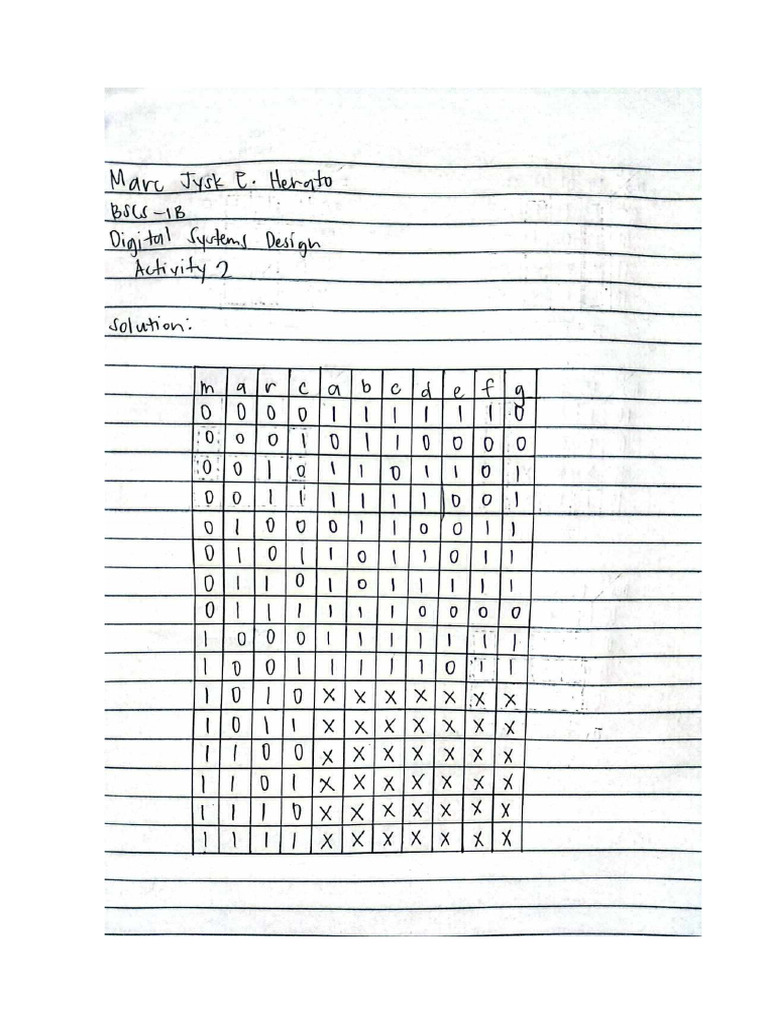 Marc Jysk E. Herato
BSCS-1B
Digital Systems Design
Activity 2
Solution:
m a r c a b c d e f g
0 0 0 0 1 1 1 1 1 1 0
0 0 0 1 0 1 1 0 0 0 0
0 0 1 0 1 1 0 1 1 0 1
0 0 1 1 1 1 1 1 0 0 1
0 1 0 0 0 1 1 0 0 1 1
0 1 0 1 1 0 1 1 0 1 1
0 1 1 0 1 0 1 1 1 1 1
0 1 1 1 1 1 1 0 0 0 0
1 0 0 0 1 1 1 1 1 1 1
1 0 0 1 1 1 1 1 0 1 1
1 0 1 0 X X X X X X X
1 0 1 1 X X X X X X X
1 1 0 0 X X X X X X X
1 1 0 1 X X X X X X X
1 1 1 0 X X X X X X X
1 1 1 1 X X X X X X X